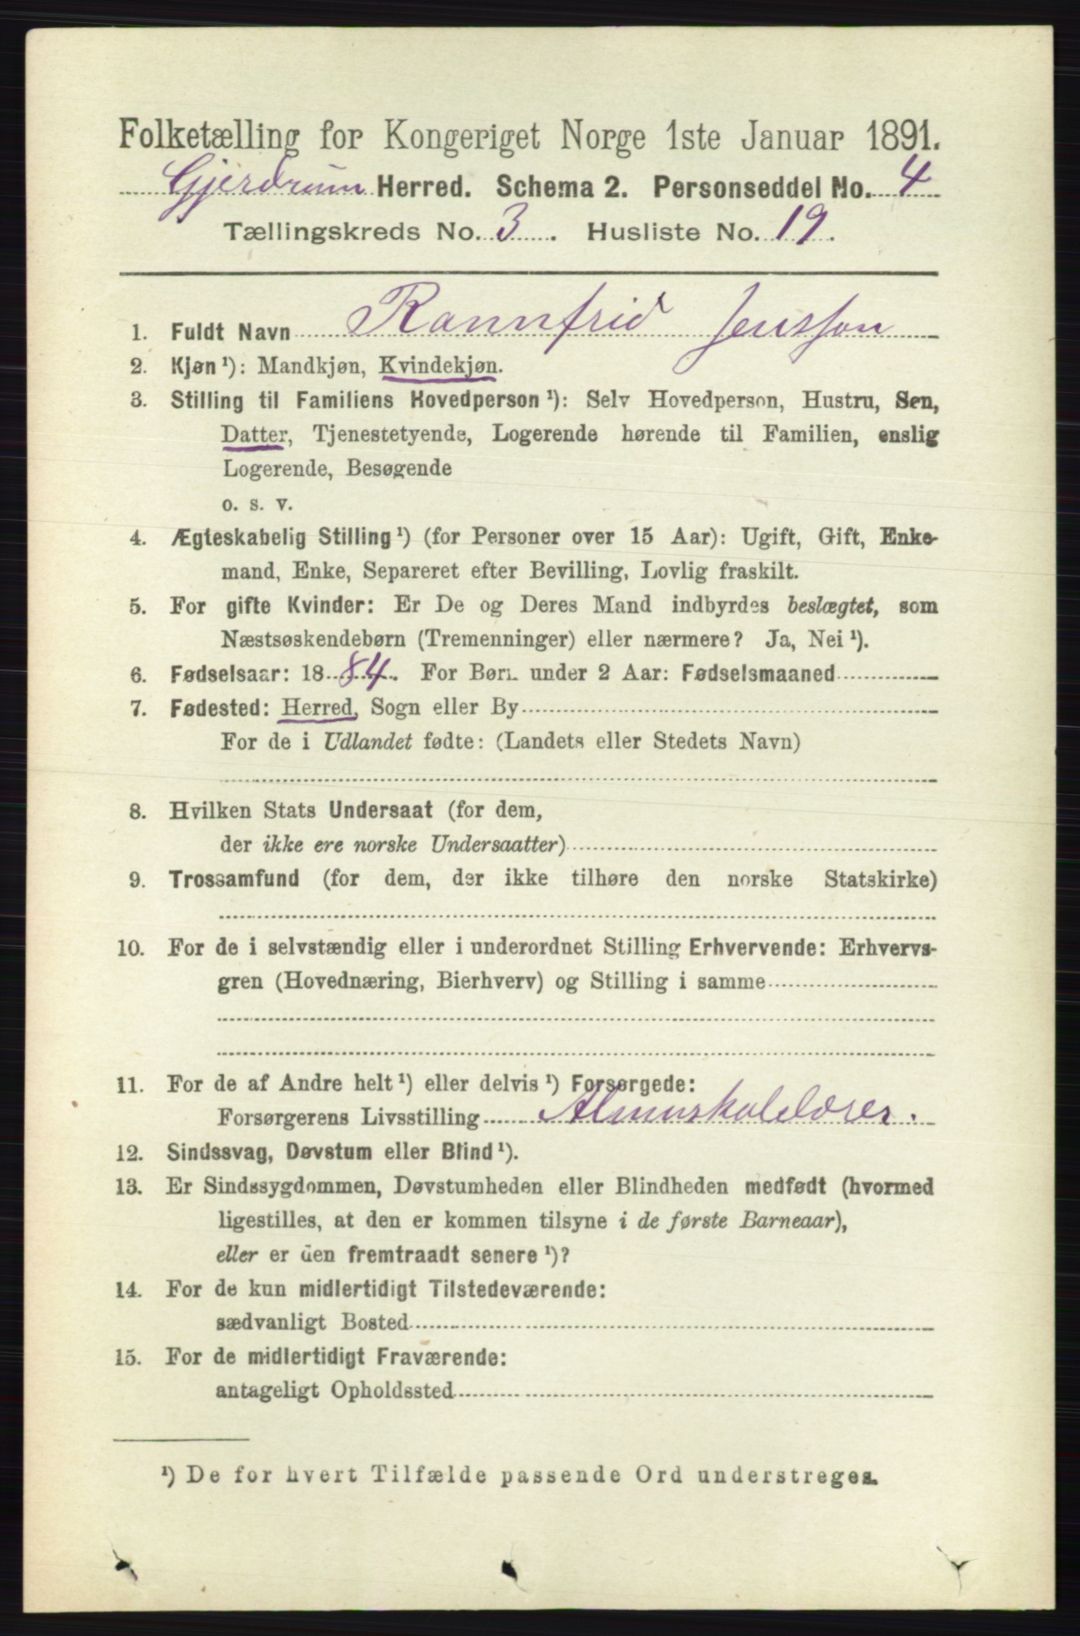 Folketælling for Kongeriget Norge 1ste Januar 1891.
Gjerdrum Herred. Schema 2. Personseddel No. 4
Tællingskreds No. 3. Husliste No. 19.
1. Fuldt Navn Rannfrid Jensson
2. Kjøn ¹): Mandkjøn, Kvindekjøn.
3. Stilling til Familiens Hovedperson ¹): Selv Hovedperson, Hustru, Søn,
Datter, Tjenestetyende, Logerende hørende til Familien, enslig
Logerende, Besøgende
o. s. v.
4. Ægteskabelig Stilling ¹) (for Personer over 15 Aar): Ugift, Gift, Enke-
mand, Enke, Separeret efter Bevilling, Lovlig fraskilt.
5. For gifte Kvinder: Er De og Deres Mand indbyrdes beslægtet, som
Næstsøskendebørn (Tremenninger) eller nærmere? Ja, Nei ¹).
6. Fødselsaar: 1884. For Børn under 2 Aar: Fødselsmaaned
7. Fødested: Herred, Sogn eller By
For de i Udlandet fødte: (Landets eller Stedets Navn)
8. Hvilken Stats Undersaat (for dem,
der ikke ere norske Undersaatter)
9. Trossamfund (for dem, der ikke tilhøre den norske Statskirke)
10. For de i selvstændig eller i underordnet Stilling Erhvervende: Erhvervs-
gren (Hovednæring, Bierhverv) og Stilling i samme
11. For de af Andre helt ¹) eller delvis ¹) Forsørgede:
Forsørgerens Livsstilling Almuskolelærer.
12. Sindssvag, Døvstum eller Blind ¹).
13. Er Sindssygdommen, Døvstumheden eller Blindheden medfødt (hvormed
ligestilles, at den er kommen tilsyne i de første Barneaar),
eller er den fremtraadt senere ¹)?
14. For de kun midlertidigt Tilstedeværende:
sædvanligt Bosted
15. For de midlertidigt Fraværende:
antageligt Opholdssted
¹) De for hvert Tilfælde passende Ord understreges.